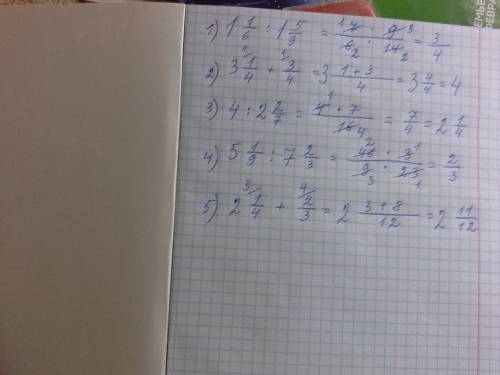 1) 1 1/6 : 1 5/9 = 7 · 9 / 6 · 14 = 3/4
2) 3 1/4 + 3/4 = 3 1+3/4 = 3 4/4 = 4
3) 4 : 2 2/7 = 4 · 7 / 16 = 7/4 = 2 1/4
4) 5 1/9 : 7 2/3 = 46 · 3 / 9 · 23 = 2/3
5) 2 1/4 + 2/3 = 2 3+8/12 = 2 11/12